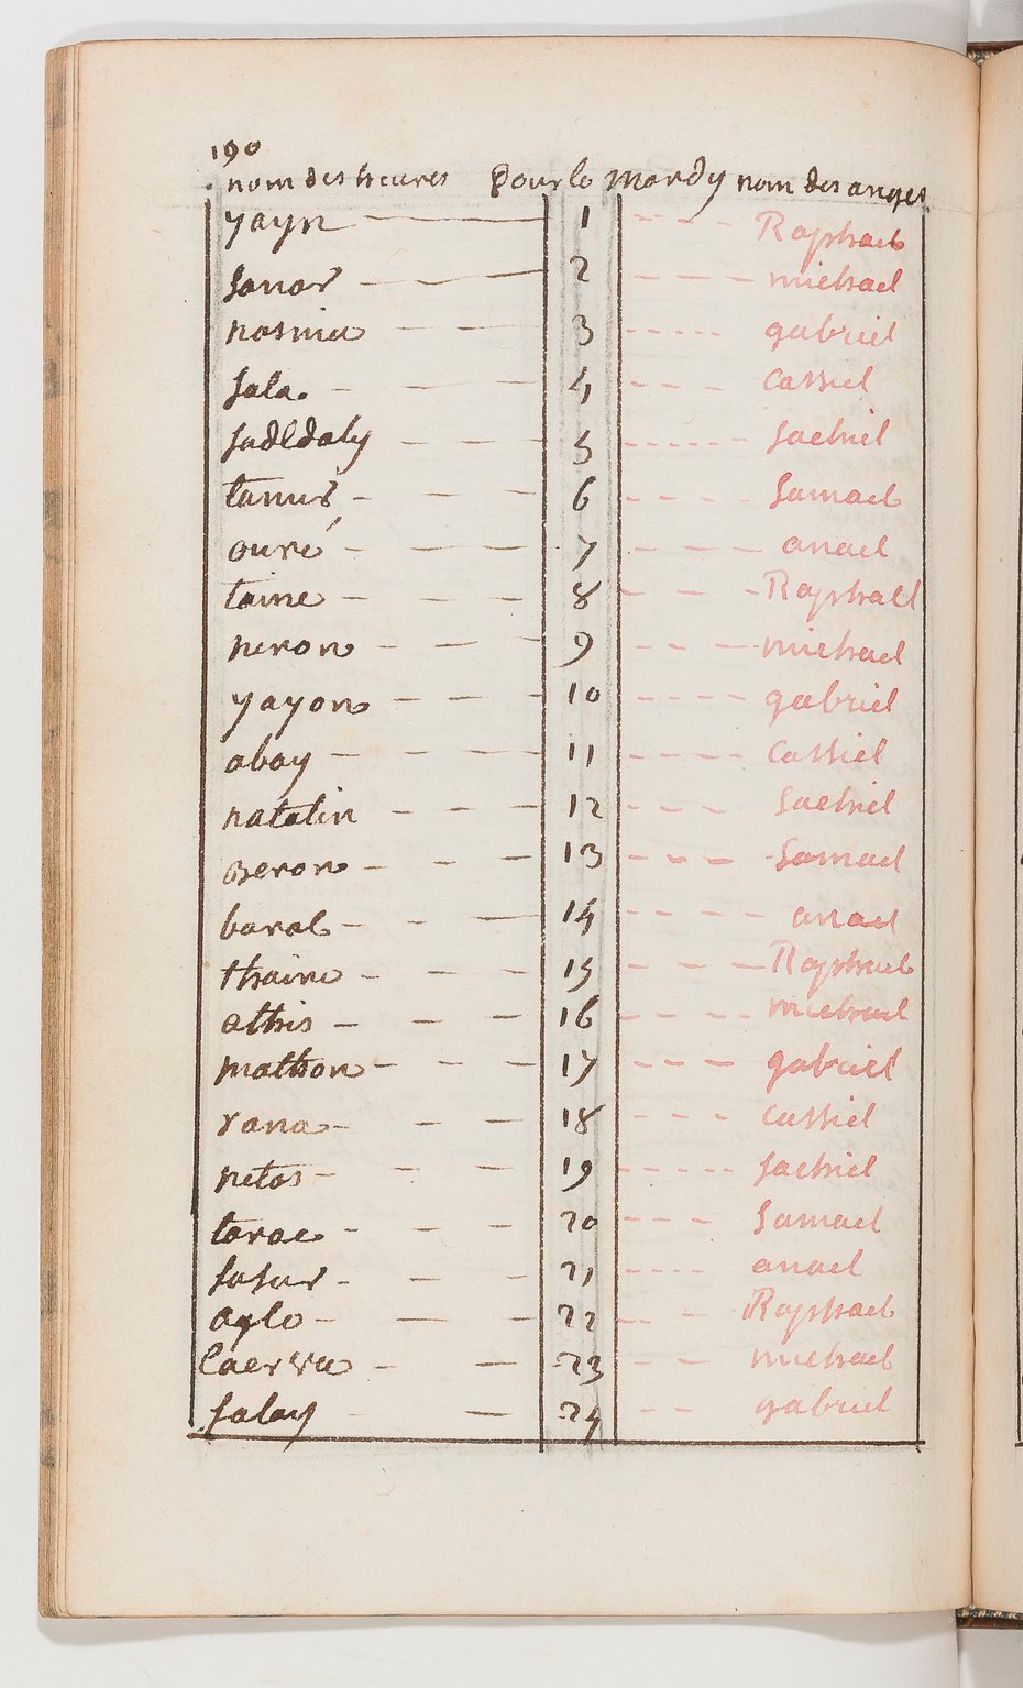 190
nom des heures pour le mardy nom des anges
yayn 1 Raphael
sanor 2 michael
nasnia 3 gabriel
sala. 4 Cassiel
sadedaly 5 sachiel
tanus 6 samael
ouré 7 anael
taine 8 Raphael
neron 9 michael
yayon 10 gabriel
abay 11 Cassiel
natalin 12 sachiel
beron 13 samael
barab 14 anael
thaine 15 Raphael
athis 16 michael
mathon 17 gabriel
rana 18 cassiel
netas 19 sachiel
tarae 20 samael
sasur 21 anael
aglo 22 Raphael
23 michael
salay 24 gabriel